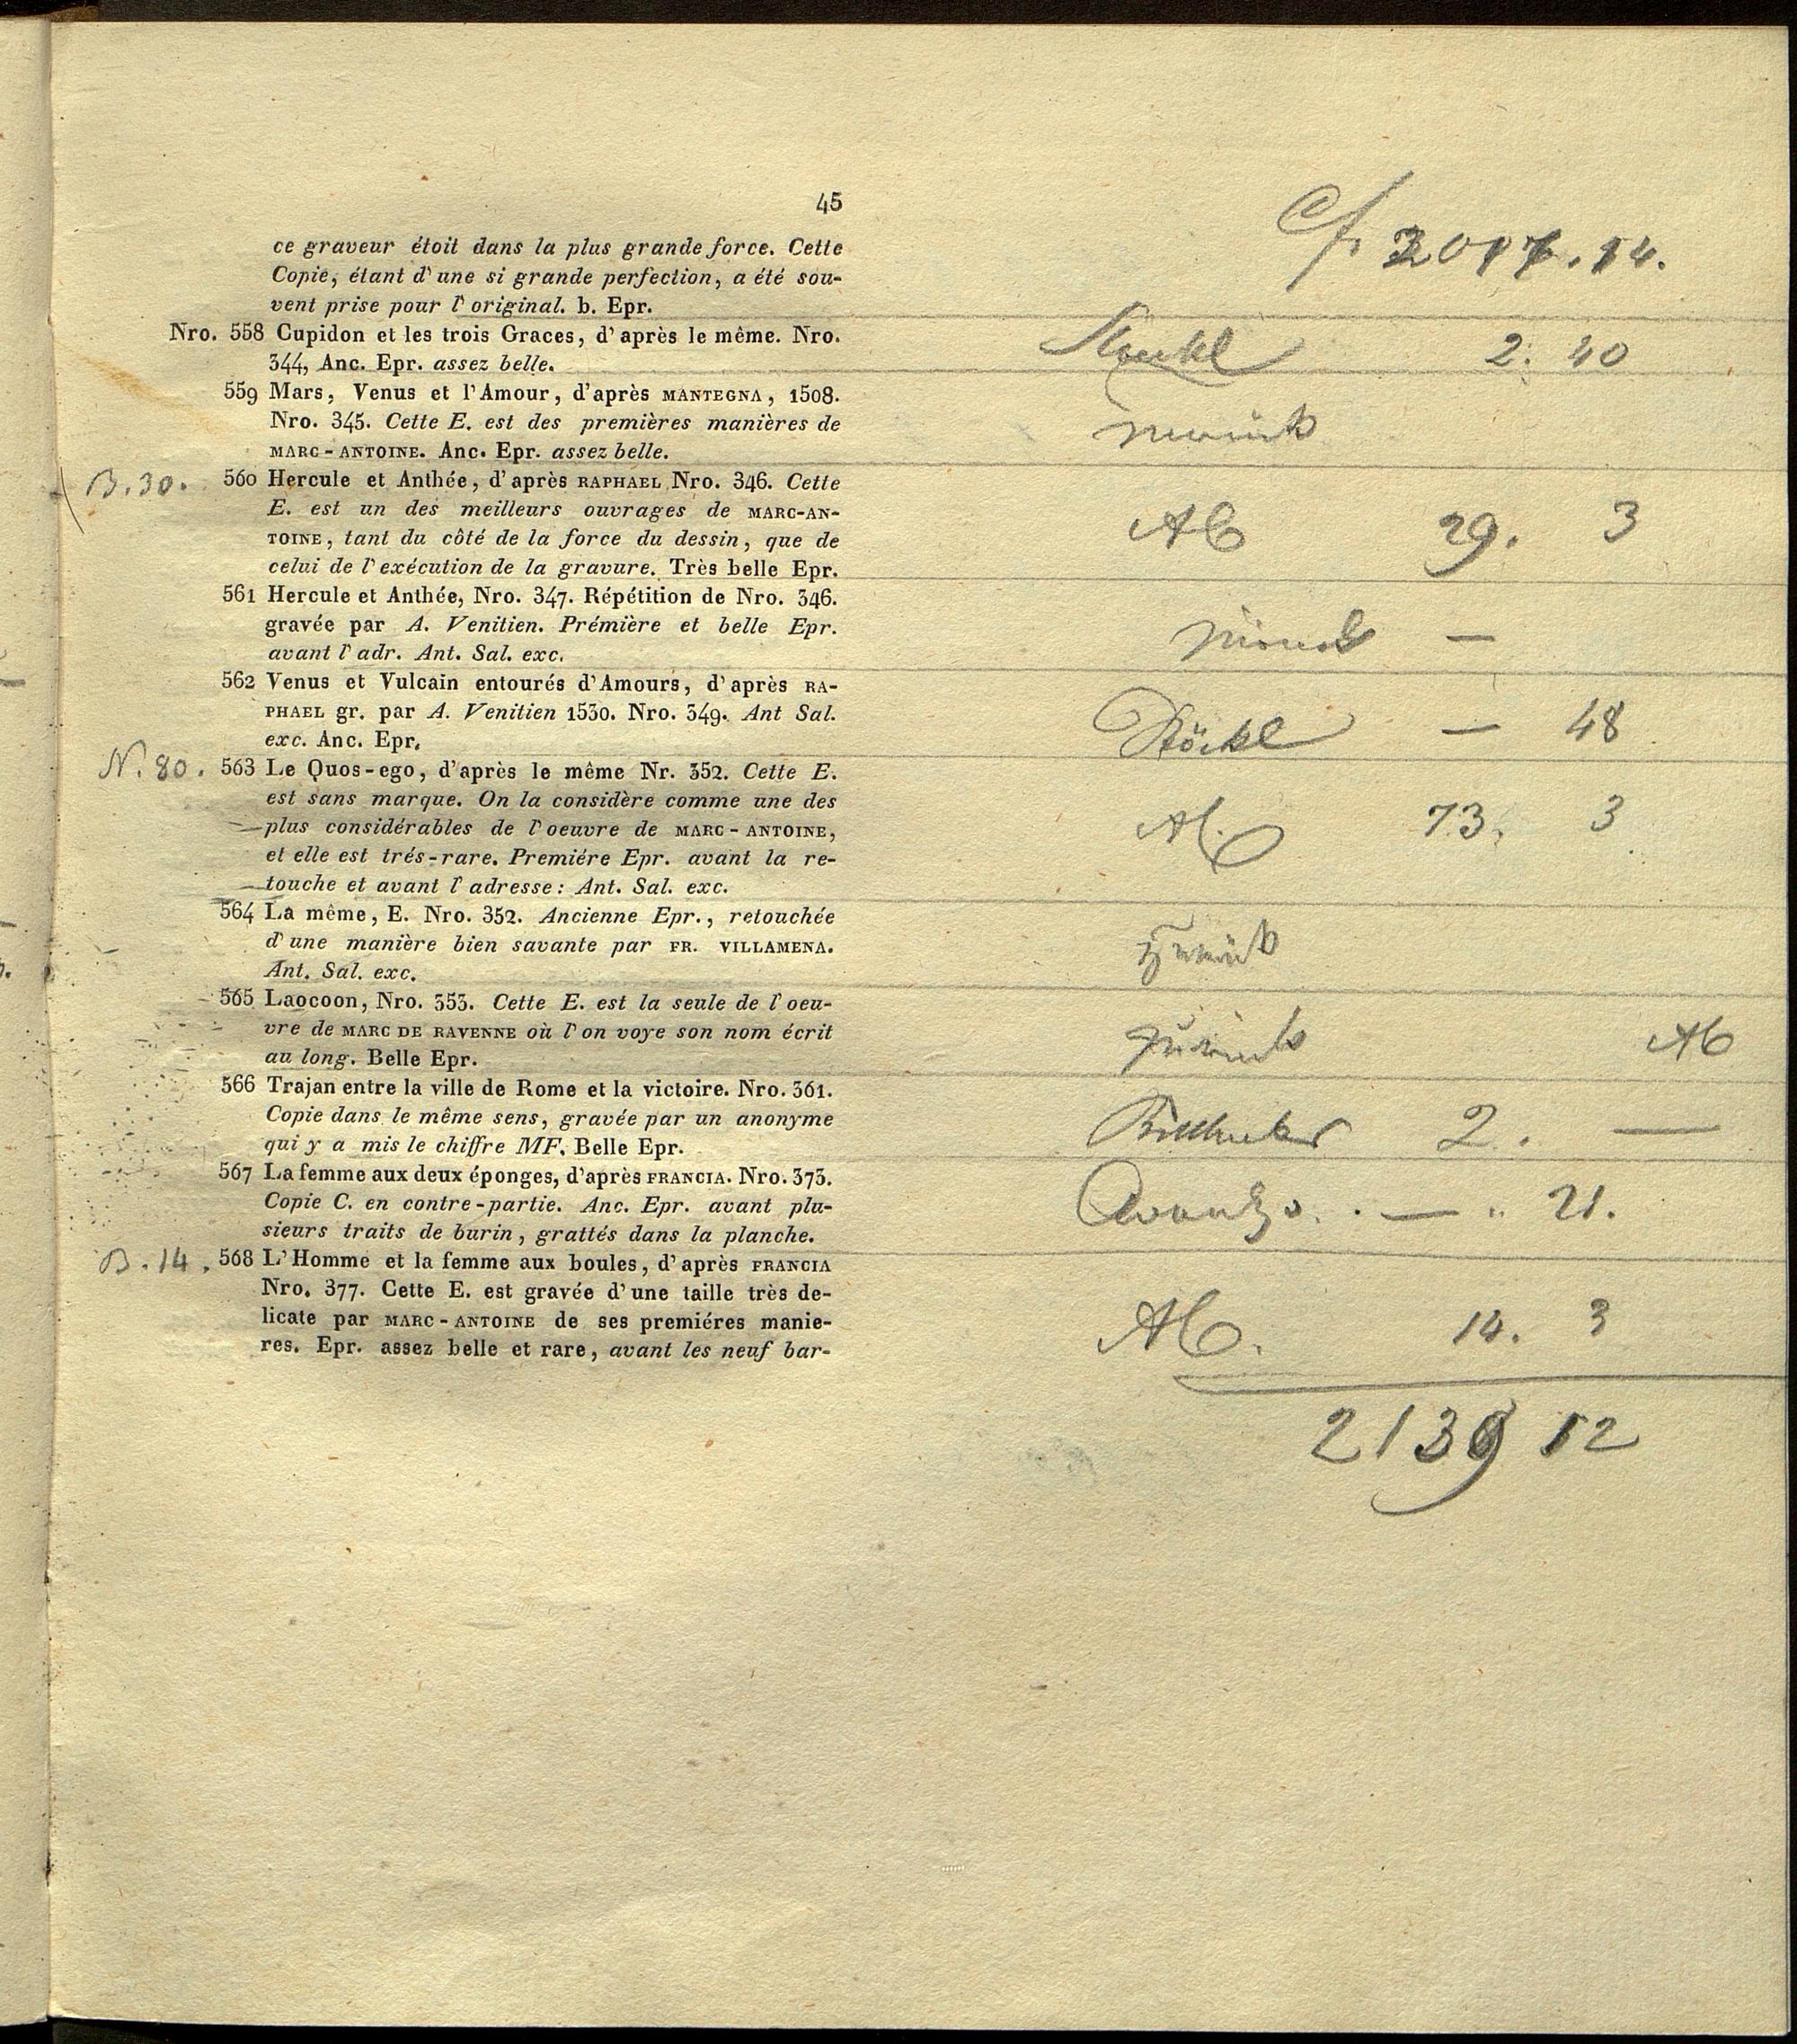 45
ce graveur étoit dans la plus grande force. Cette
Copie, étant d'une si grande perfection, a été sou-
vent prise pour l'original. b. Epr.
Nro. 558 Cupidon et les trois Graces, d'après le même. Nro.
344, Anc. Epr. assez belle.
559 Mars, Venus et l'Amour, d'après MANTEGNA, 1508.
Nro. 345. Cette E. est des premières manières de
MARC-ANTOINE. Anc. Epr. assez belle.
B. 30. 560 Hercule et Anthée, d'après RAPHAEL Nro. 346. Cette
E. est un des meilleurs ouvrages de MARC-AN-
TOINE, tant du côté de la force du dessin, que de
celui de l'exécution de la gravure. Très belle Epr.
561 Hercule et Anthée, Nro. 347. Répétition de Nro. 346.
gravée par A. Venitien. Prémière et belle Epr.
avant l'adr. Ant. Sal. exc.
562 Venus et Vulcain entourés d'Amours, d'après RA-
PHAEL gr. par A. Venitien 1530. Nro. 349. Ant Sal.
exc. Anc. Epr.
N. 80. 563 Le Quos-ego, d'après le même Nr. 352. Cette E.
est sans marque. On la considère comme une des
plus considérables de l'oeuvre de MARC-ANTOINE,
et elle est trés-rare. Premiére Epr. avant la re-
touche et avant l'adresse: Ant. Sal. exc.
564 La même, E. Nro. 352. Ancienne Epr., retouchée
d'une manière bien savante par FR. VILLAMENA.
Ant. Sal. exc.
565 Laocoon, Nro. 353. Cette E. est la seule de l'oeu-
vre de MARC DE RAVENNE où l'on voye son nom écrit
au long. Belle Epr.
566 Trajan entre la ville de Rome et la victoire. Nro. 361.
Copie dans le même sens, gravée par un anonyme
qui y a mis le chiffre MF. Belle Epr.
567 La femme aux deux éponges, d'après FRANCIA. Nro. 373.
Copie C. en contre-partie. Anc. Epr. avant plu-
sieurs traits de burin, grattés dans la planche.
B. 14. 568 L'Homme et la femme aux boules, d'après FRANCIA
Nro. 377. Cette E. est gravée d'une taille très de-
licate par MARC-ANTOINE de ses premiéres manie-
res. Epr. assez belle et rare, avant les neuf bar-
2. 40
AC 29. 3
—
Stöckl — 48
AC 73. 3
zurück
zurück AC
2. —
— " 21.
AC. 14. 3
2139 12